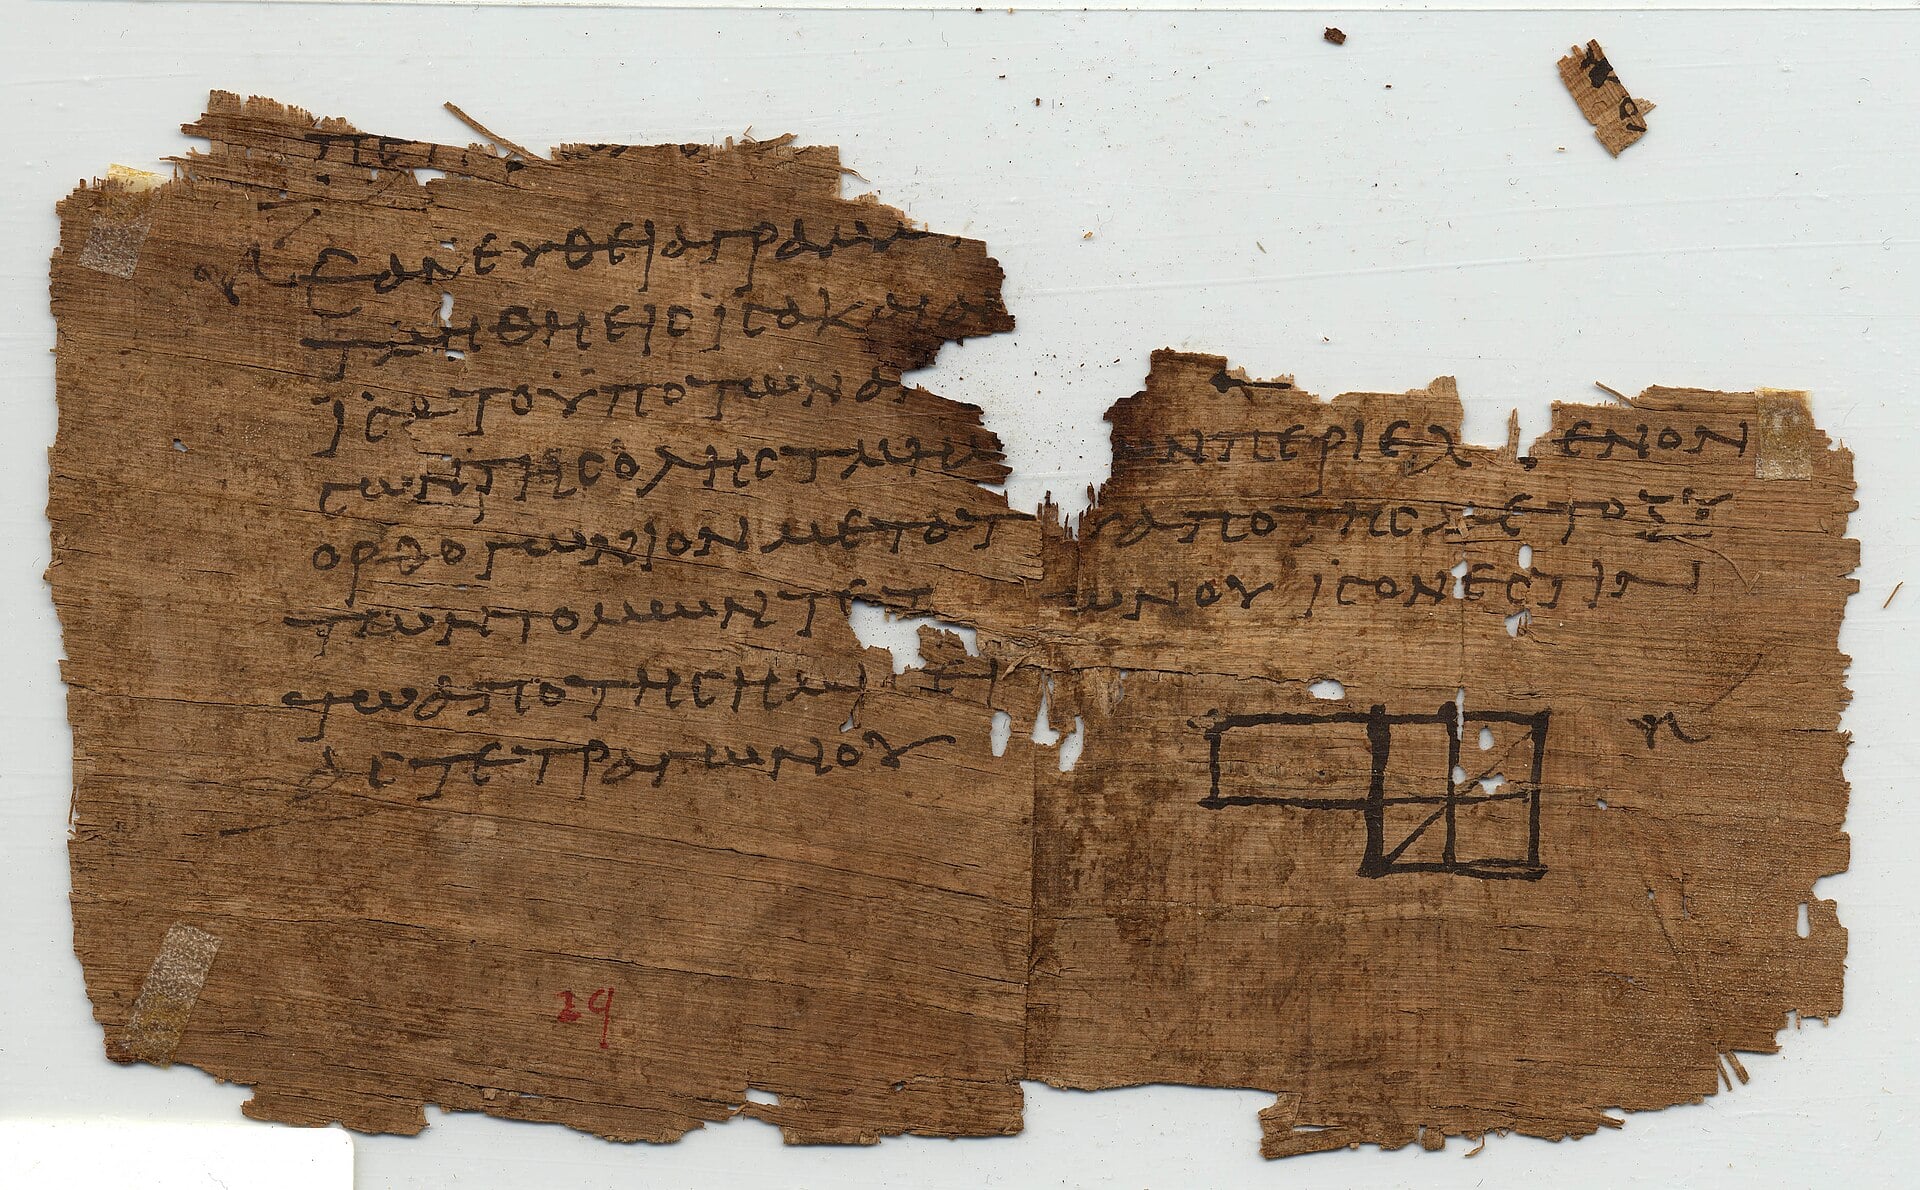 ΕΑΝ ΕΥΘΕΙΑ ΓΡΑΜΜ
ΤΜΗΘΗ ΕΙϹ ΙϹΑ ΚΑΙ Α
ΙϹΑ ΤΟ ΫΠΟ ΤΩΝ Α
ΙϹΩΝ ΤΗϹ ΟΛΗϹ ΤΜΗΜ ΩΝ ΠΕΡΙΕΧ ΕΝΟΝ
ΟΡΘΟΓΩΝΙΟΝ ΜΕΤΑ Τ Υ ΑΠΟ ΤΗϹ ΜΕΤΟΞΥ
ΤΩΝ ΤΟΜΩΝ ΤΕΤ ΩΝΟΥ ΙϹΟΝ ΕϹΤΙΝ
ΤΩ ΑΠΟ ΤΗϹ ΗΜΙ ΕΙ
ΑϹ ΤΕΤΡΑΓΩΝΟΥ
29